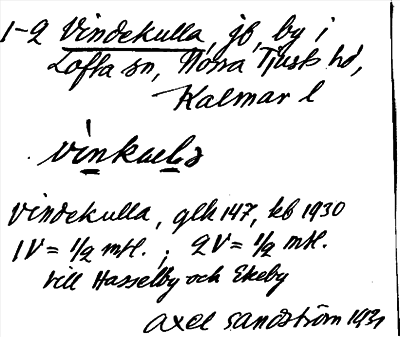 1-2 Vindekulla, jb, by i
Lofta sn, Norra Tjusts hd,
Kalmar l
vinkulə
Vindekulla, glk 147, kb 1930
1V = 1/2 mtl. ; 2V = 1/2 mtl.
till Hasselby och Ekeby
Axel Sandström 1931